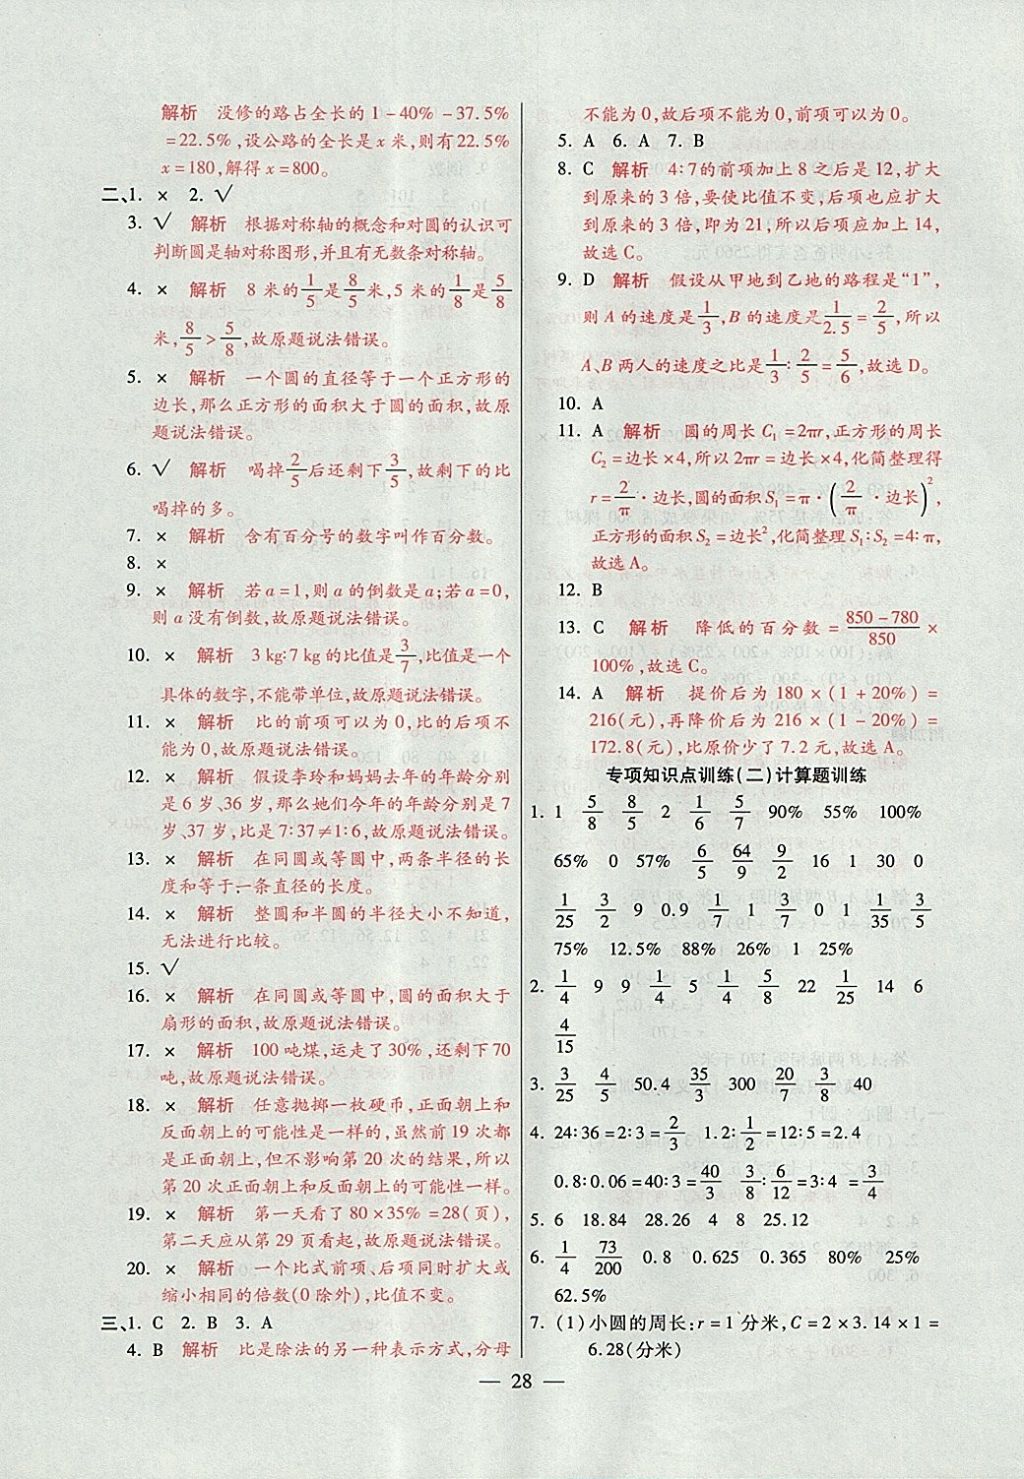 解析 没修的路占全长的 1－40%－37.5%
＝22.5%,设公路的全长是 x 米,则有 22.5%
x＝180,解得 x＝800。
二、1. × 2. √
3. √ 解析 根据对称轴的概念和对圆的认识可
判断圆是轴对称图形,并且有无数条对称轴。
4. × 解析 8 米的 1/5 是 8/5 米,5 米的 1/8 是 5/8
米, 8/5 > 5/8 ,故原题说法错误。
5. × 解析 一个圆的直径等于一个正方形的
边长,那么正方形的面积大于圆的面积,故原
题说法错误。
6. √ 解析 喝掉 2/5 后还剩下 3/5 ,故剩下的比
喝掉的多。
7. × 解析 含有百分号的数字叫作百分数。
8. ×
9. × 解析 若 a＝1,则 a 的倒数是 a;若 a＝0,
则 a 没有倒数,故原题说法错误。
10. × 解析 3 kg∶7 kg 的比值是 3/7 ,比值是一个
具体的数字,不能带单位,故原题说法错误。
11. × 解析 比的前项可以为 0,比的后项不
能为 0,故原题说法错误。
12. × 解析 假设李玲和妈妈去年的年龄分别
是 6 岁、36 岁,那么她们今年的年龄分别是 7
岁、37 岁,比是 7∶37≠1∶6,故原题说法错误。
13. × 解析 在同圆或等圆中,两条半径的长
度和等于一条直径的长度。
14. × 解析 整圆和半圆的半径大小不知道,
无法进行比较。
15. √
16. × 解析 在同圆或等圆中,圆的面积大于
扇形的面积,故原题说法错误。
17. × 解析 100 吨煤,运走了 30%,还剩下 70
吨,故原题说法错误。
18. × 解析 任意抛掷一枚硬币,正面朝上和
反面朝上的可能性是一样的,虽然前 19 次都
是正面朝上,但不影响第 20 次的结果,所以
第 20 次正面朝上和反面朝上的可能性一样。
19. × 解析 第一天看了 80×35%＝28(页),
第二天应从第 29 页看起,故原题说法错误。
20. × 解析 一个比式前项、后项同时扩大或
缩小相同的倍数(0 除外),比值不变。
三、1. C 2. B 3. A
4. B 解析 比是除法的另一种表示方式,分母
不能为 0,故后项不能为 0,前项可以为 0。
5. A 6. A 7. B
8. C 解析 4∶7 的前项加上 8 之后是 12,扩大
到原来的 3 倍,要使比值不变,后项也应扩大
到原来的 3 倍,即为 21,所以后项应加上 14,
故选 C。
9. D 解析 假设从甲地到乙地的路程是“1”,
则 A 的速度是 1/3 ,B 的速度是 1/2.5 ＝ 2/5 ,所以
A、B 两人的速度之比是 1/3 ∶ 2/5 ＝ 5/6 ,故选 D。
10. A
11. A 解析 圆的周长 C₁＝2πr,正方形的周长
C₂＝边长×4,所以 2πr＝边长×4,化简整理得
r＝ 2/π ·边长,圆的面积 S₁＝π·( 2/π ·边长)²,
正方形的面积 S₂＝边长²,化简整理 S₁∶S₂＝4∶π,
故选 A。
12. B
13. C 解析 降低的百分数＝ (850－780)/850 ×
100%,故选 C。
14. A 解析 提价后为 180×(1＋20%)＝
216(元),再降价后为 216×(1－20%)＝
172.8(元),比原价少了 7.2 元,故选 A。
专项知识点训练(二)计算题训练
1. 1 5/8 8/5 2 1/6 5/7 90% 55% 100%
65% 0 57% 6/5 64/9 9/2 16 1 30 0
1/25 3/2 9 0.9 1/7 1 3/7 0 1 1/35 3/5
75% 12.5% 88% 26% 1 25%
2. 1/4 9 9 1/4 5 1/4 5/8 22 1/25 14 6
4/15
3. 3/25 4/5 50.4 35/3 300 20/7 3/8 40
4. 24∶36＝2∶3＝ 2/3 1.2∶ 1/2 ＝12∶5＝2.4
0.8∶0.06＝40∶3＝ 40/3 3/8 ∶ 6/12 ＝3∶4＝ 3/4
5. 6 18.84 28.26 4 8 25.12
6. 1/4 73/200 0.8 0.625 0.365 80% 25%
62.5%
7. (1)小圆的周长:r＝1 分米,C＝2×3.14×1＝
6.28(分米)
— 28 —